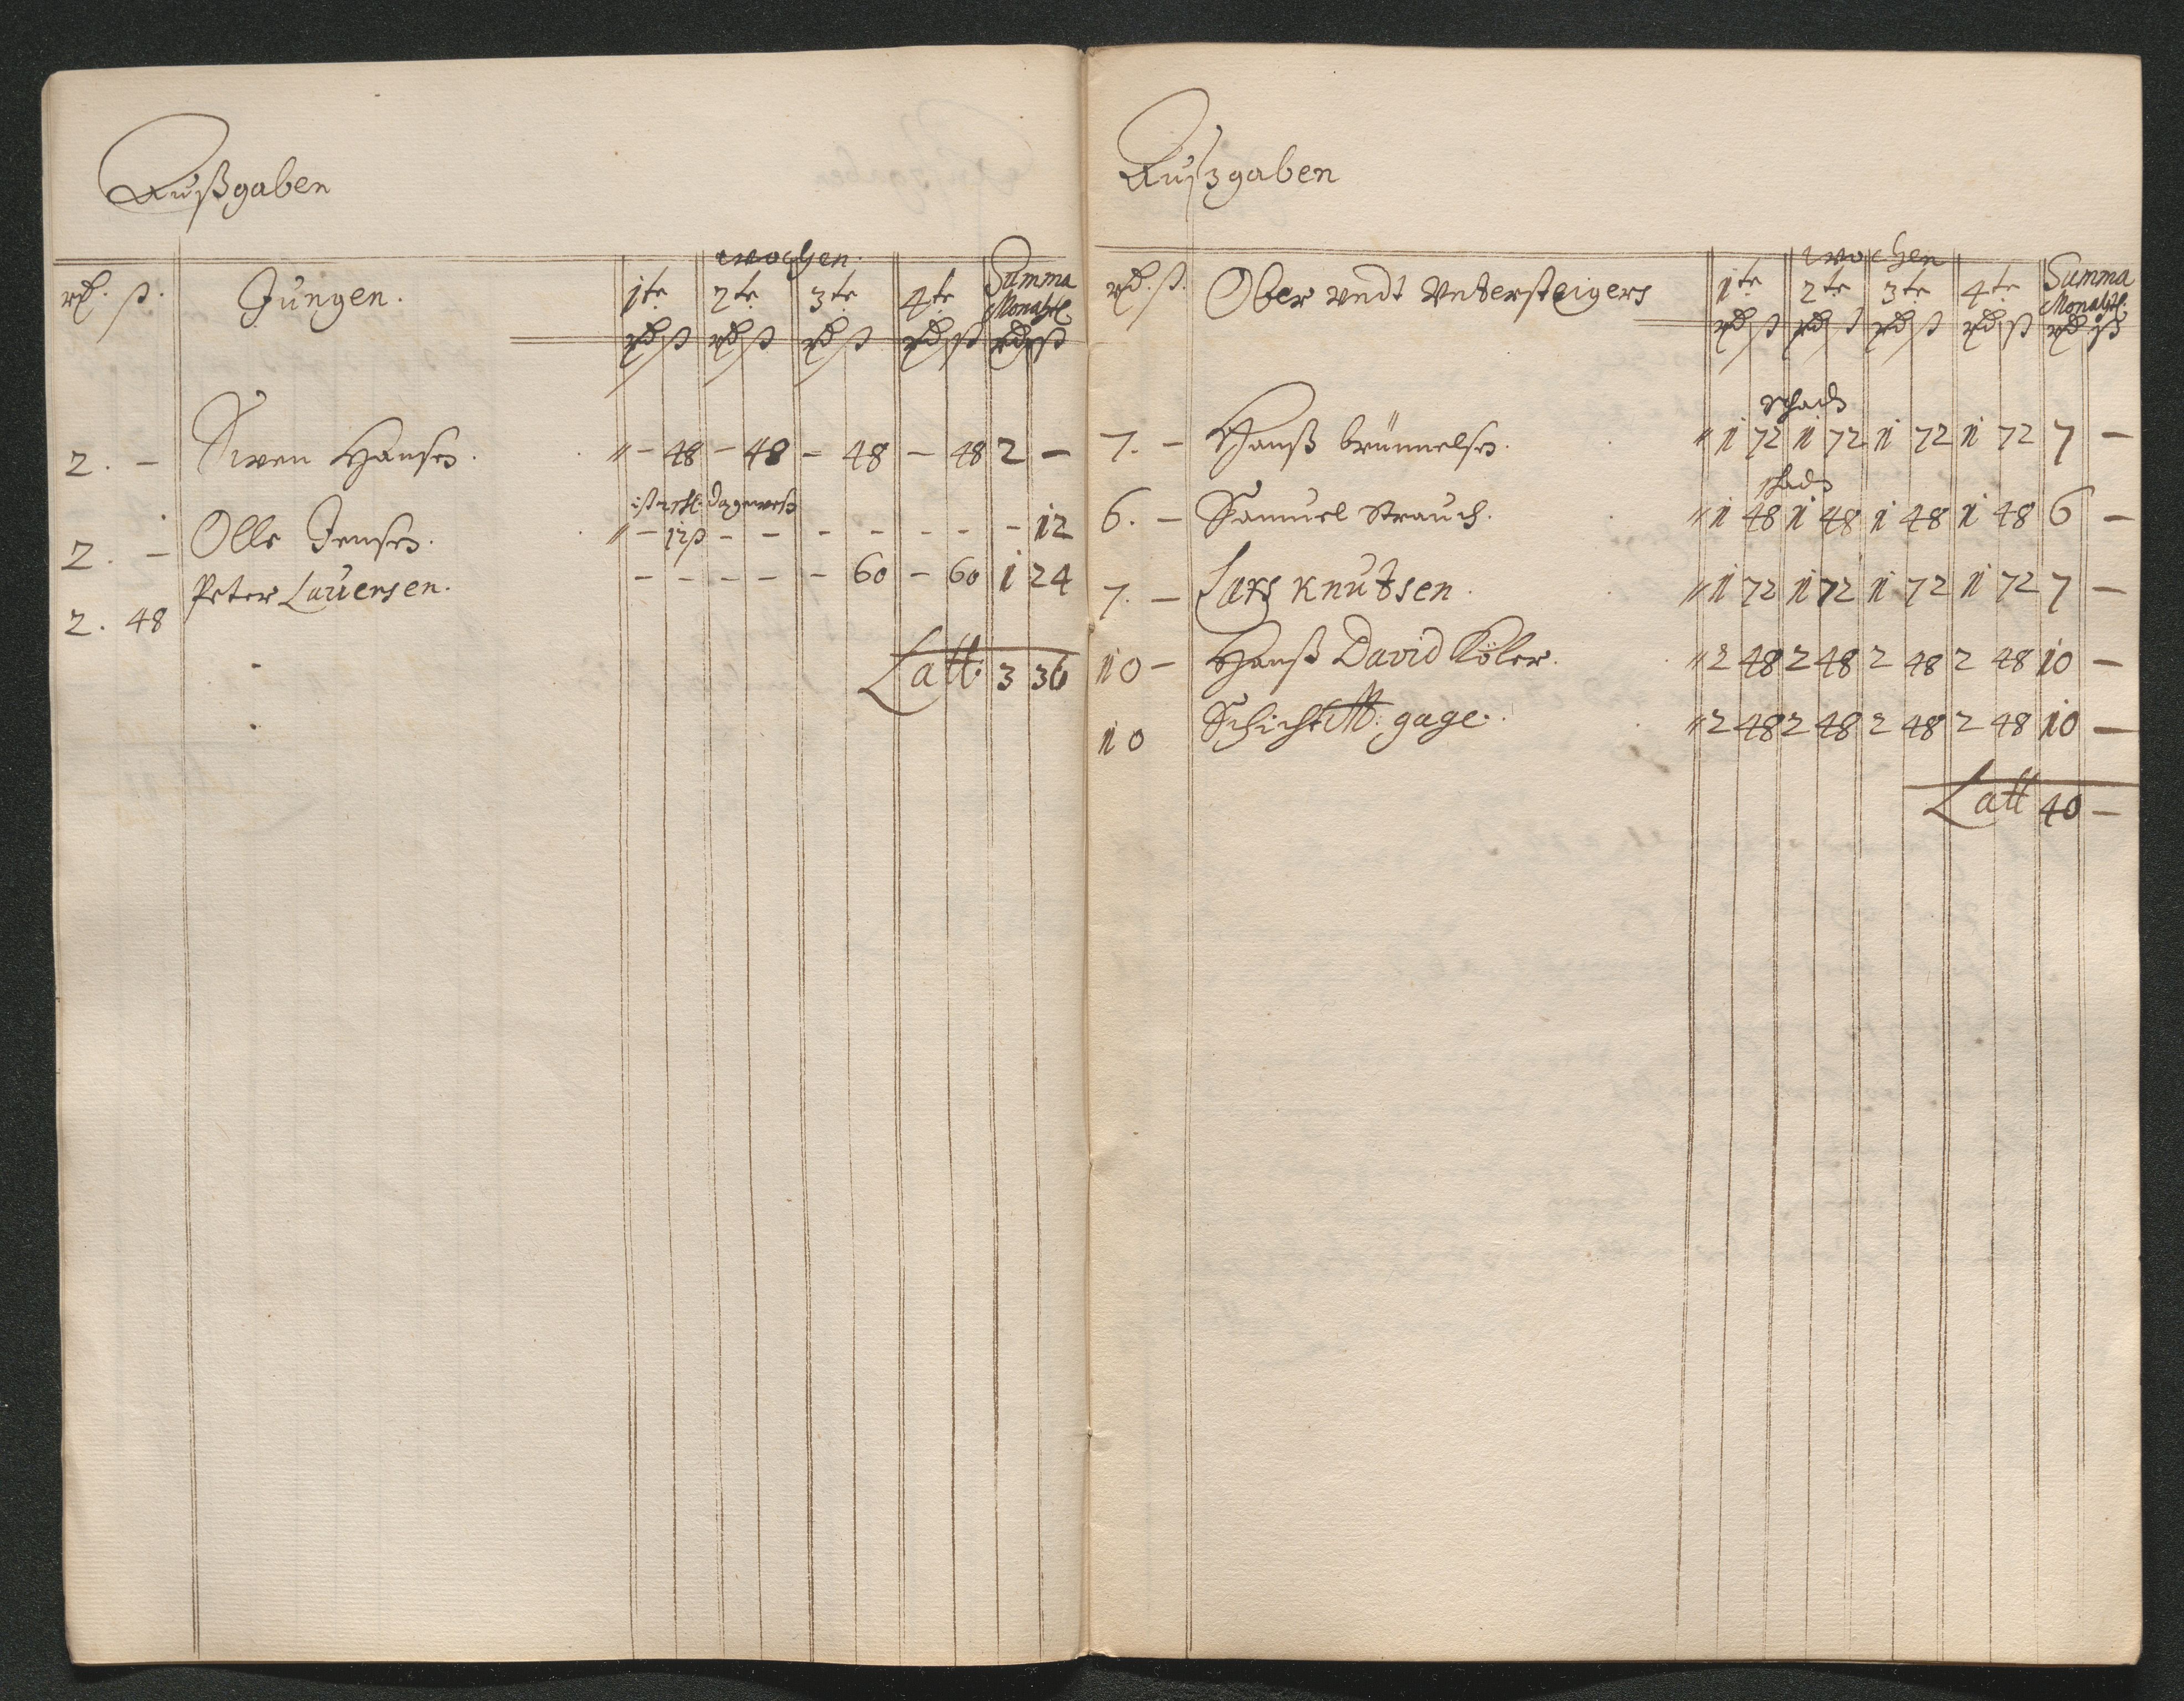 Außgaben
wochen.
rd. ß. Jungen. 1te 2te 3te 4te Summa Monahtl.
rd ß rd ß rd ß rd ß rd ß
2. - Swen Hansen. " - 48 - 48 - 48 - 48 2 -
2. - Olle Jensen. " - 12ß - - - - - - - 12
2. 48 Peter Lauersen. - - - - - 60 - 60 1 24
Latt. 3 36
Außgaben
wochen
rd. ß. Ober undt Untersteigers 1te 2te 3te 4te Summa Monahtl.
rd ß rd ß rd ß rd ß rd ß
7. - Hanß brünnelsen. " 1 72 1 72 1 72 1 72 7 -
6. - Samuel Strauch. " 1 48 1 48 1 48 1 48 6 -
7. - Lars Knutsen. " 1 72 1 72 1 72 1 72 7 -
10 - Hanß David Köler. " 2 48 2 48 2 48 2 48 10 -
10 Schicht M. gage. " 2 48 2 48 2 48 2 48 10 -
Latt 40 -